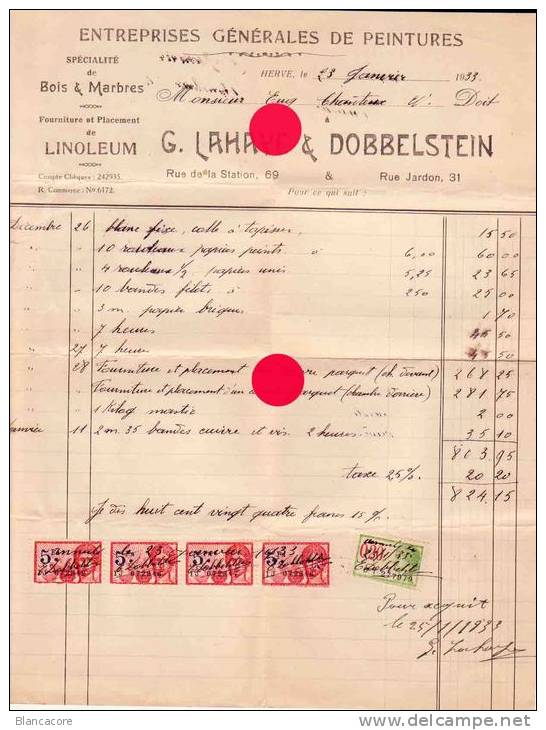 ENTREPRISES GÉNÉRALES DE PEINTURES
SPÉCIALITÉ
de
Bois & Marbres
HERVE, le 23 Janvier 1933
Monsieur Eug Chanteux Doit
à
Fourniture et Placement
de
LINOLEUM
G. LAHAYE & DOBBELSTEIN
Compte Chèques : 242935.
R. Commerce : No 6172.
Rue de la Station, 69 & Rue Jardon, 31
Pour ce qui suit :
Décembre 26 blanc fixe, colle à tapisser 15 50
" " 10 rouleaux papiers peints à 6,00 60 00
" " 4 rouleaux 1/2 papiers unis 5,25 23 65
" " 10 bandes filets à 250 25 00
" " 3 m. papier briques 1 70
" " 7 heures 45 50
" 27 7 heures 45 50
" 28 Fourniture et placement parquet (ch. devant) 268 25
" " Fourniture et placement d'un parquet (chambre derrière) 281 75
" " 1 Kilog mastic 2 00
Janvier 11 2 m. 35 bandes cuivre et vis. 2 heures 35 10
803 95
taxe 25% 20 20
824.15
Je dis huit cent vingt quatre francs 15 %.
5 5 5 5
annulé le 23 janvier 1933
Pour acquit
le 25/1/1933
Blancacore
www.delcampe.net